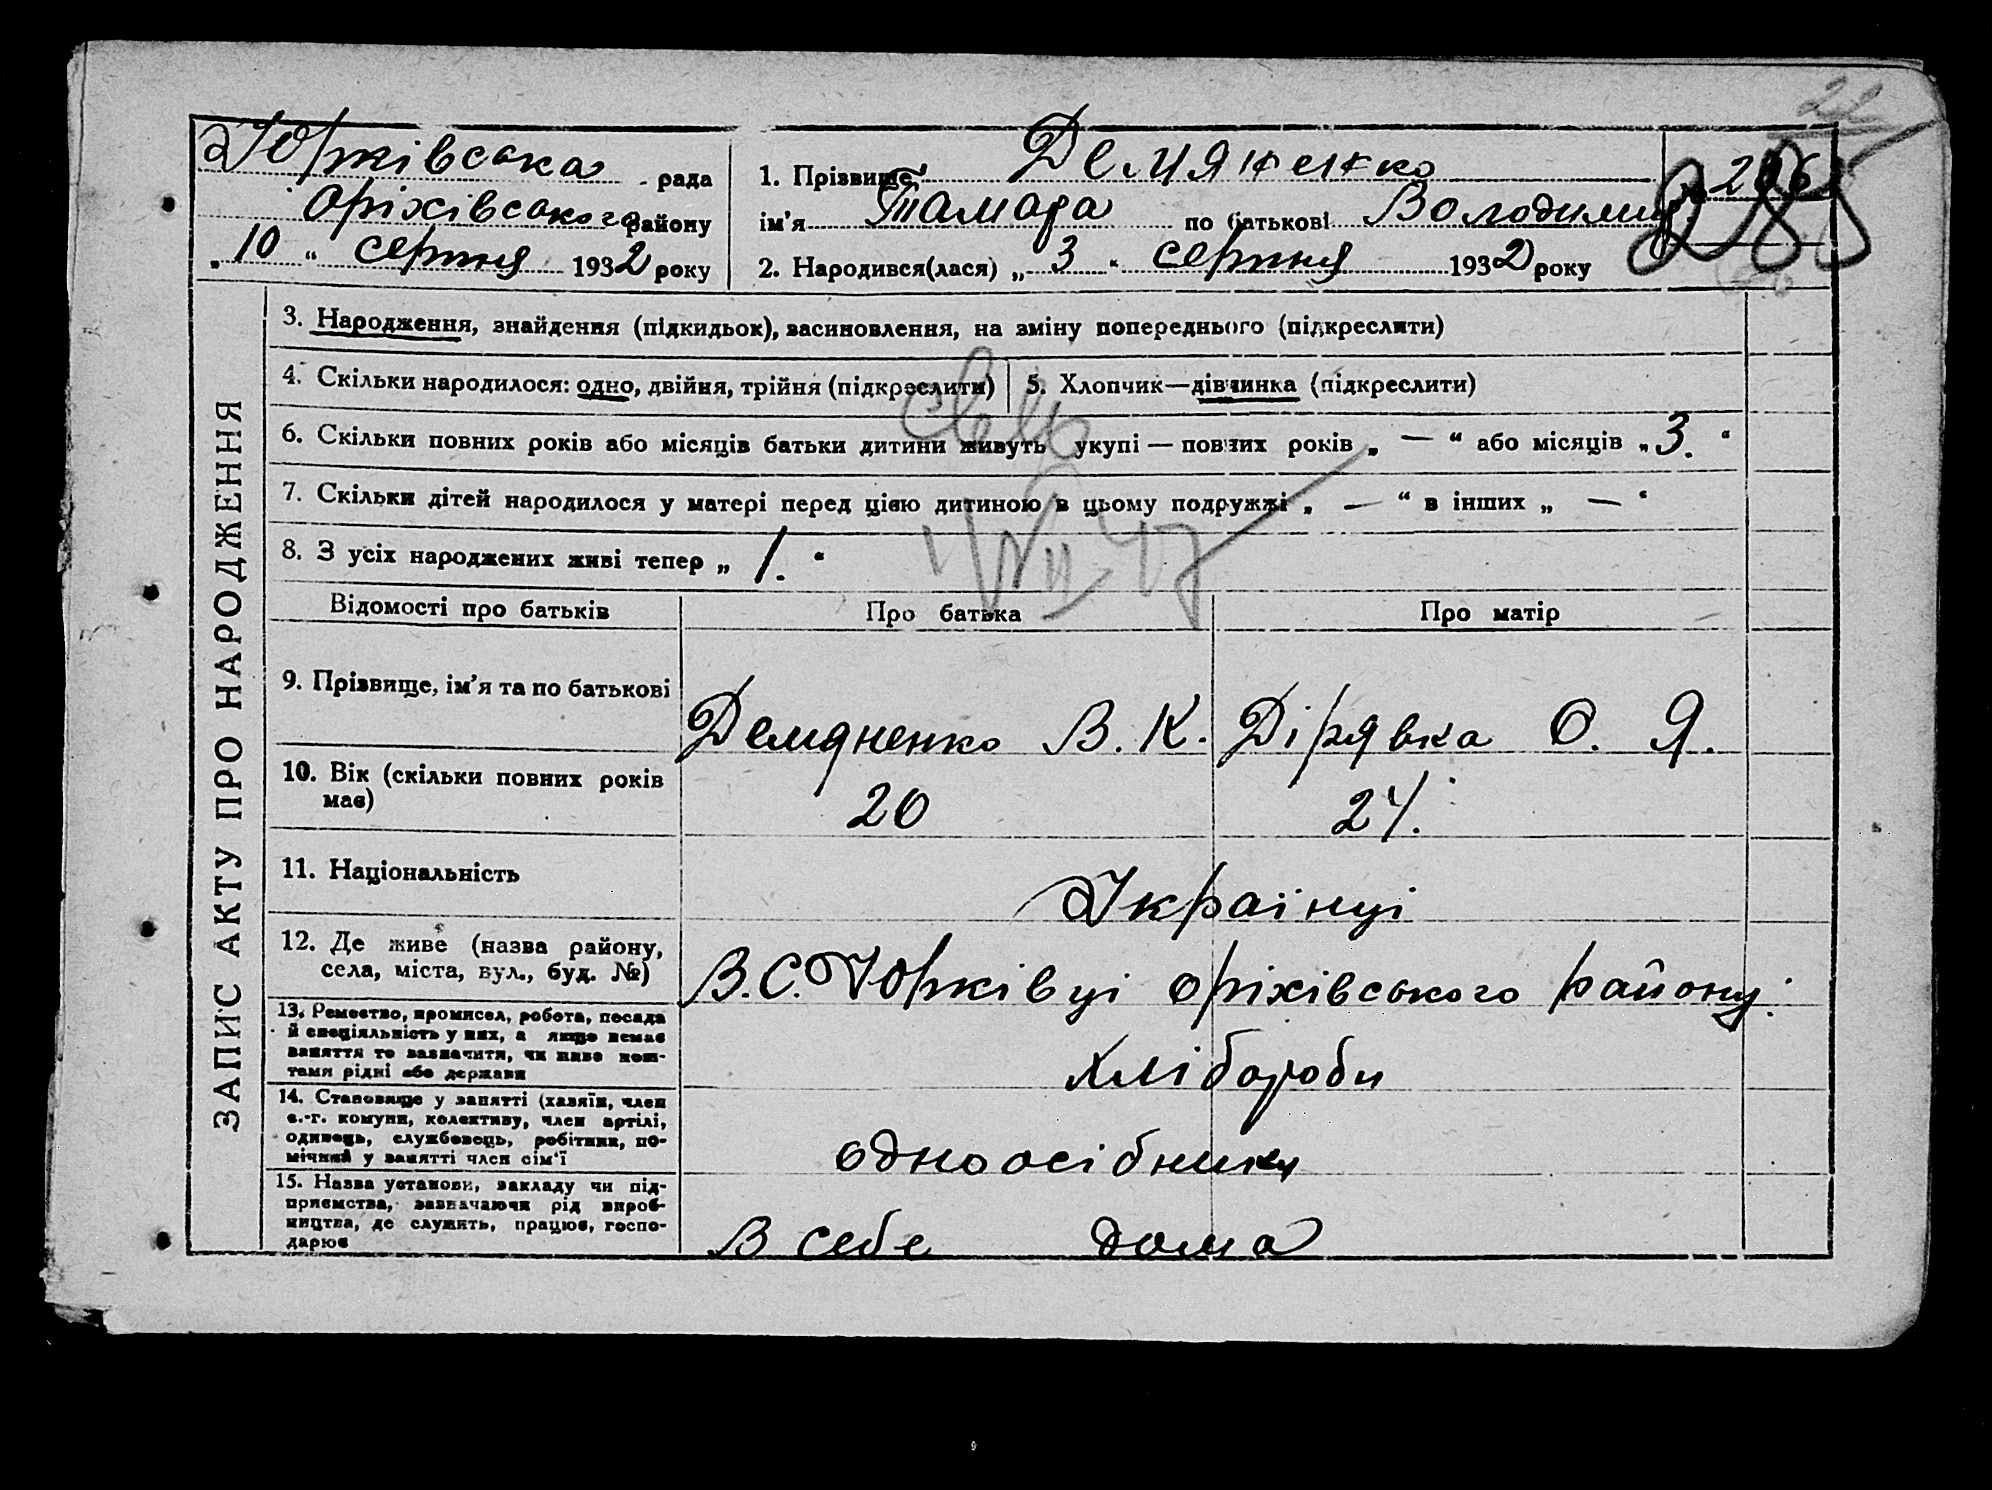 Юрківська рада
Оріхівського району
„ 10 " серпня 1932 року
1. Прізвище Демяненко
ім'я Тамара по батькові Володимир.
2. Народився(лася) „ 3 " серпня 1932 року
ЗАПИС АКТУ ПРО НАРОДЖЕННЯ
3. Народження, знайдення (підкидьок), васиновлення, на зміну попереднього (підкреслити)
4. Скільки народилося: одно, двійня, трійня (підкреслити)
5. Хлопчик—дівчинка (підкреслити)
6. Скільки повних років або місяців батьки дитини живуть укупі — повних років „ — " або місяців „ 3. "
7. Скільки дітей народилося у матері перед цією дитиною в цьому подружжі „ — " в інших „ — "
8. З усіх народжених живі тепер „ 1. "
Відомості про батьків Про батька Про матір
9. Прізвище, ім'я та по батькові
Демяненко В. К. Дірявка О. Я.
10. Вік (скільки повних років
має)
20 24.
11. Національність
Українці
12. Де живе (назва району,
села, міста, вул., буд. №)
В. С. Юрківці Оріхівського району.
13. Ремество, промисел, робота, посада
й спеціяльність у них, а якщо немає
заняття то зазначити, чи живе кош-
тами рідні або держави
Хлібороби
14. Становище у занятті (хазяїн, член
с.-г. комуни, колективу, член артілі,
одинець, службовець, робітник, по-
мічний у занятті член сім'ї
одноосібники
15. Назва установи, закладу чи під-
приємства, зазначаючи рід вироб-
ництва, де служить, працює, госпо-
дарює
В себе дома